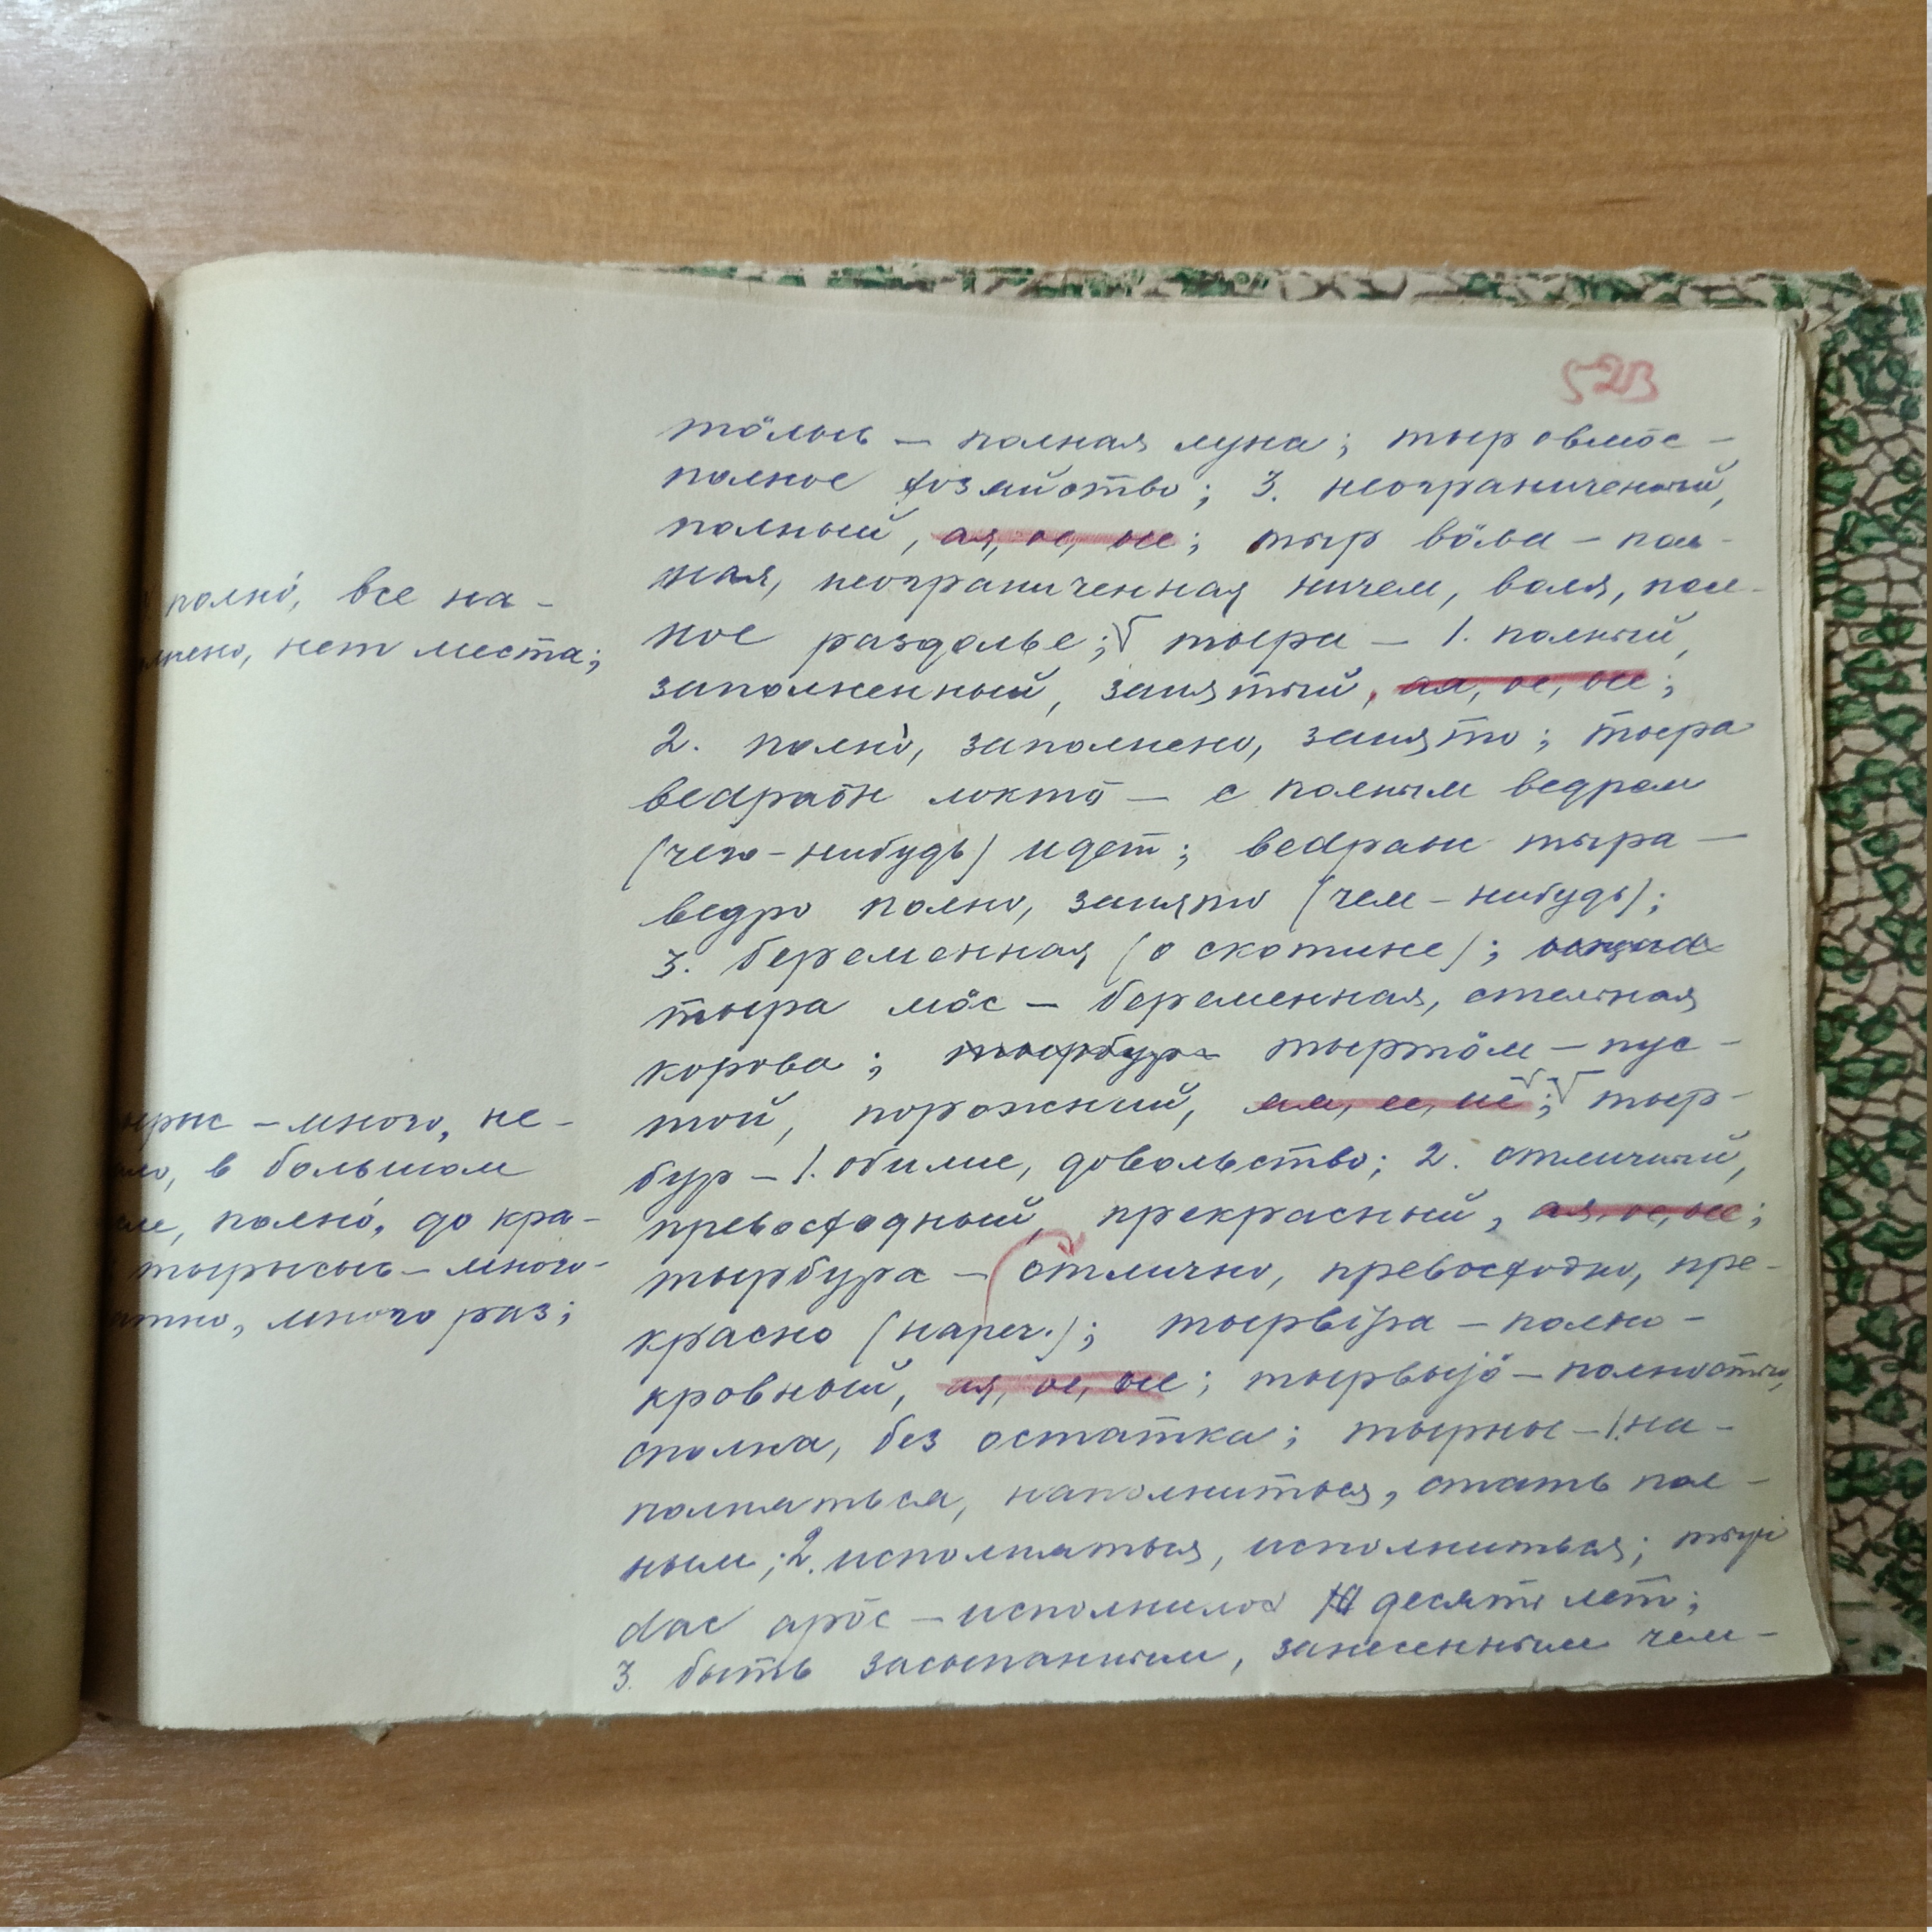 523
тӧлысь — полная луна; тыр овмӧс —
полное хозяйство; 3. неограниченный,
полный, ая, ое, ые; тыр вӧла — пол-
ная, неограниченная ничем, воля, пол-
ное раздолье; √ тыра — 1. полный,
заполненный, занятый, ая, ое, ые;
2. полно́, заполнено, занято; тыра
ведраӧн локтӧ — с полным ведром
(чего-нибудь) идет; ведраыс тыра —
ведро полно, занято (чем-нибудь);
3. беременная (о скотине);
тыра мӧс — беременная, стельная
корова; тырбура тыртӧм — пус-
той, порожний, ая, ее, ие; √ тыр-
бур — 1. обилие, довольство; 2. отличный,
превосходный, прекрасный, ая, ое, ые;
тырбура — отлично, превосходно, пре-
красно (нареч.); тырвӱра — полно-
кровный, ая, ое, ые; тырвыјӧ — полностью,
сполна, без остатка; тырны — 1. на-
полняться, наполниться, стать пол-
ным; 2. исполняться, исполниться; тырі
dас арӧс — исполнилось десять лет;
3. быть засыпанным, занесенным чем-
полно́, все на-
нет места;
— много, не-
в большом
полно́, до кра-
тырысь — много-
много раз;